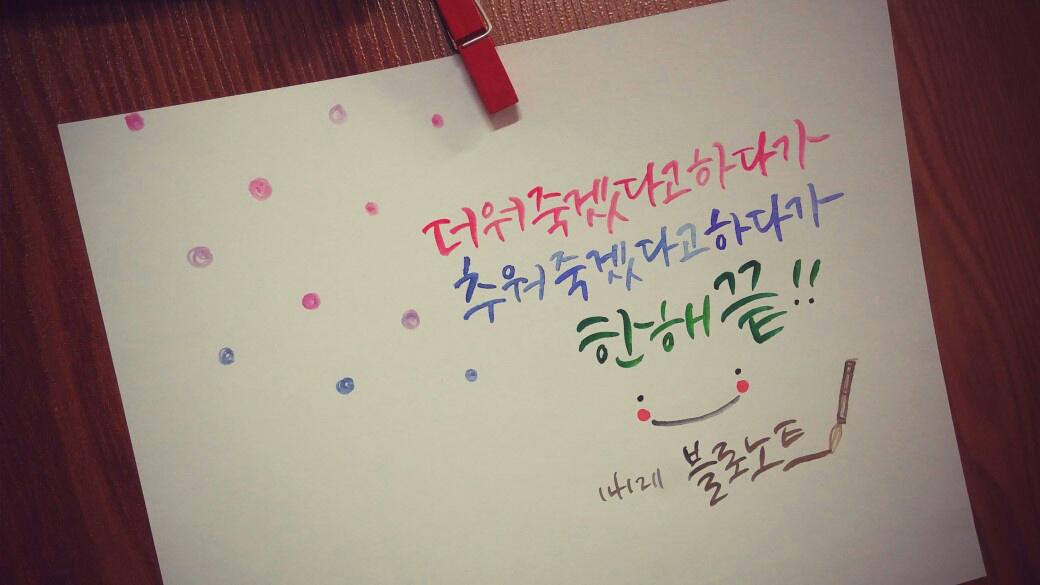 더워죽겠다고하다가
추워죽겠다고하다가
한해끝!!
141211 블로노트